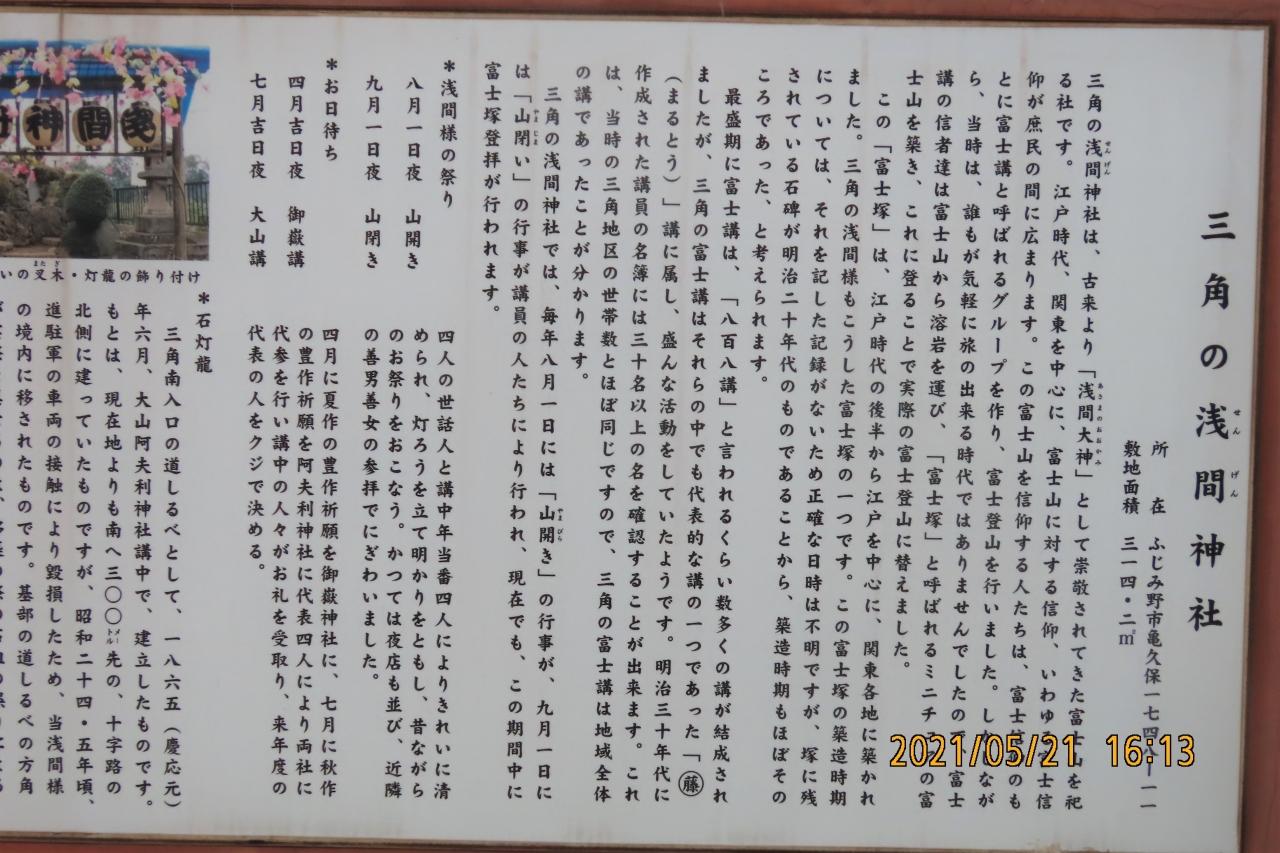 三角の浅間神社
せん げん
所 在 ふじみ野市亀久保一七四八ー一一
敷地面積 三一四・二㎡
三角の浅間神社は、古来より「浅間大神」として崇敬されてきた富士山を祀
せん げん
あさまのおおかみ
る社です。江戸時代、関東を中心に、富士山に対する信仰、いわゆる富士信
仰が庶民の間に広まります。この富士山を信仰する人たちは、富士 のも
とに富士講と呼ばれるグループを作り、富士登山を行いました。しかしなが
ら、当時は、誰もが気軽に旅の出来る時代ではありませんでしたので、富士
講の信者達は富士山から溶岩を運び、「富士塚」と呼ばれるミニチュアの富
士山を築き、これに登ることで実際の富士登山に替えました。
この「富士塚」は、江戸時代の後半から江戸を中心に、関東各地に築かれ
ました。三角の浅間様もこうした富士塚の一つです。この富士塚の築造時期
については、それを記した記録がないため正確な日時は不明ですが、塚に残
されている石碑が明治二十年代のものであることから、築造時期もほぼその
ころであった、と考えられます。
最盛期に富士講は、「八百八講」と言われるくらい数多くの講が結成され
ましたが、三角の富士講はそれらの中でも代表的な講の一つであった「㊥藤
(まるとう)」講に属し、盛んな活動をしていたようです。明治三十年代に
作成された講員の名簿には三十名以上の名を確認することが出来ます。これ
は、当時の三角地区の世帯数とほぼ同じですので、三角の富士講は地域全体
の講であったことが分かります。
三角の浅間神社では、毎年八月一日には「山開き」の行事が、九月一日に
やま びら
は「山閉い」の行事が講員の人たちにより行われ、現在でも、この期間中に
やま じま
富士塚登拝が行われます。
*浅間様の祭り
八月一日夜 山開き
九月一日夜 山閉き
四人の世話人と講中年当番四人によりきれいに清
められ、灯ろうを立て明かりをともし、昔ながら
のお祭りをおこなう。かつては夜店も並び、近隣
の善男善女の参拝でにぎわいました。
*お日待ち
四月吉日夜 御嶽講
七月吉日夜 大山講
四月に夏作の豊作祈願を御嶽神社に、七月に秋作
の豊作祈願を阿夫利神社に代表四人により両社に
代参を行い講中の人々がお礼を受取り、来年度の
代表の人をクジで決める。
浅間神社
いの叉木・灯龍の飾り付け
また ぎ
*石灯龍
三角南入口の道しるべとして、一八六五(慶応元)
年六月、大山阿夫利神社講中で、建立したものです。
もとは、現在地よりも南へ三〇〇㍍先の、十字路の
北側に建っていたものですが、昭和二十四・五年頃、
進駐軍の車両の接触により毀損したため、当浅間様
の境内に移されたものです。基部の道しるべの方角
2021/05/21 16:13